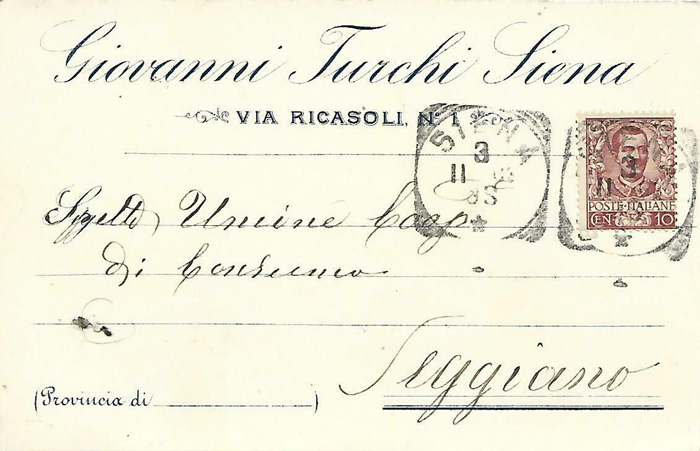 Giovanni Turchi Siena
VIA RICASOLI, N. 1
SIENA
3
11
POSTE ITALIANE
CEN 10
Spett. Unione Coop.
di Consumo
Seggiano
(Provincia di